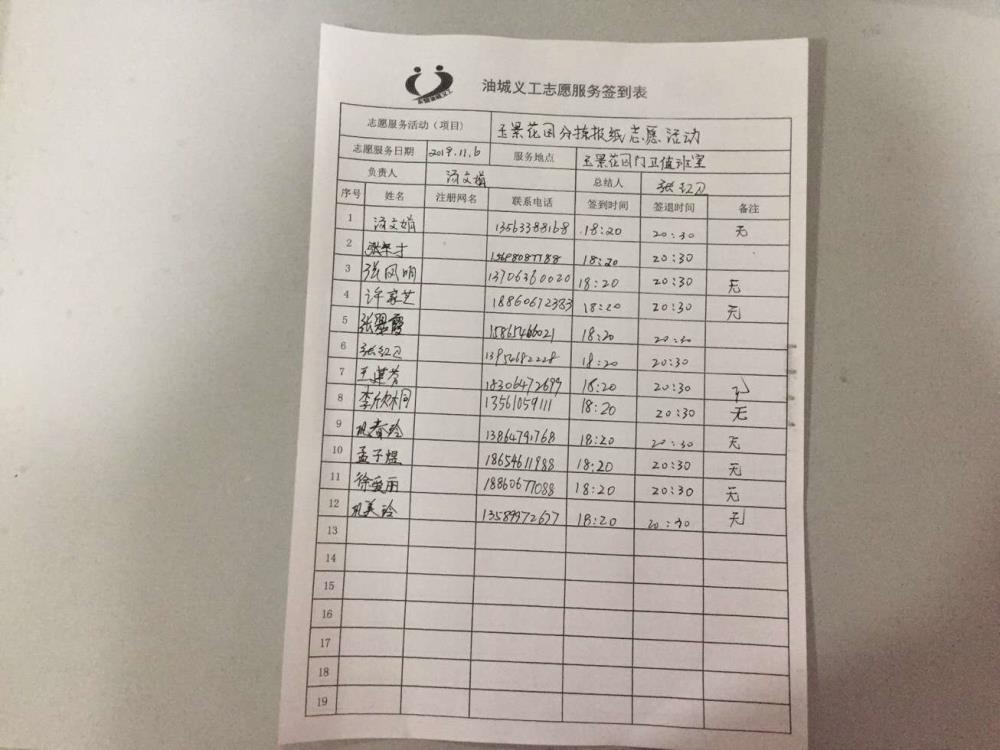 油城义工志愿服务签到表
志愿服务活动（项目） 玉景花园分拣报纸志愿活动
志愿服务日期 2019.11.6 服务地点 玉景花园门卫值班室
负责人 汤文娟 总结人 张红卫
序号 姓名 注册网名 联系电话 签到时间 签退时间 备注
1 汤文娟 13563388168 18:20 20:30 无
2 18:20 20:30
3 张凤鸣 13706360020 18:20 20:30 无
4 许家芝 18860672383 18:20 20:30 无
5 15865466021 18:20 20:30
6 张红卫 13954682228 18:20 20:30
7 18306472699 18:20 20:30
8 李欣桐 13561059111 18:20 20:30 无
9 13864791768 18:20 20:30 无
10 孟子煜 18654611988 18:20 20:30 无
11 徐爱丽 18860677088 18:20 20:30 无
12 巩美玲 13589972677 18:20 20:30 无
13
14
15
16
17
18
19